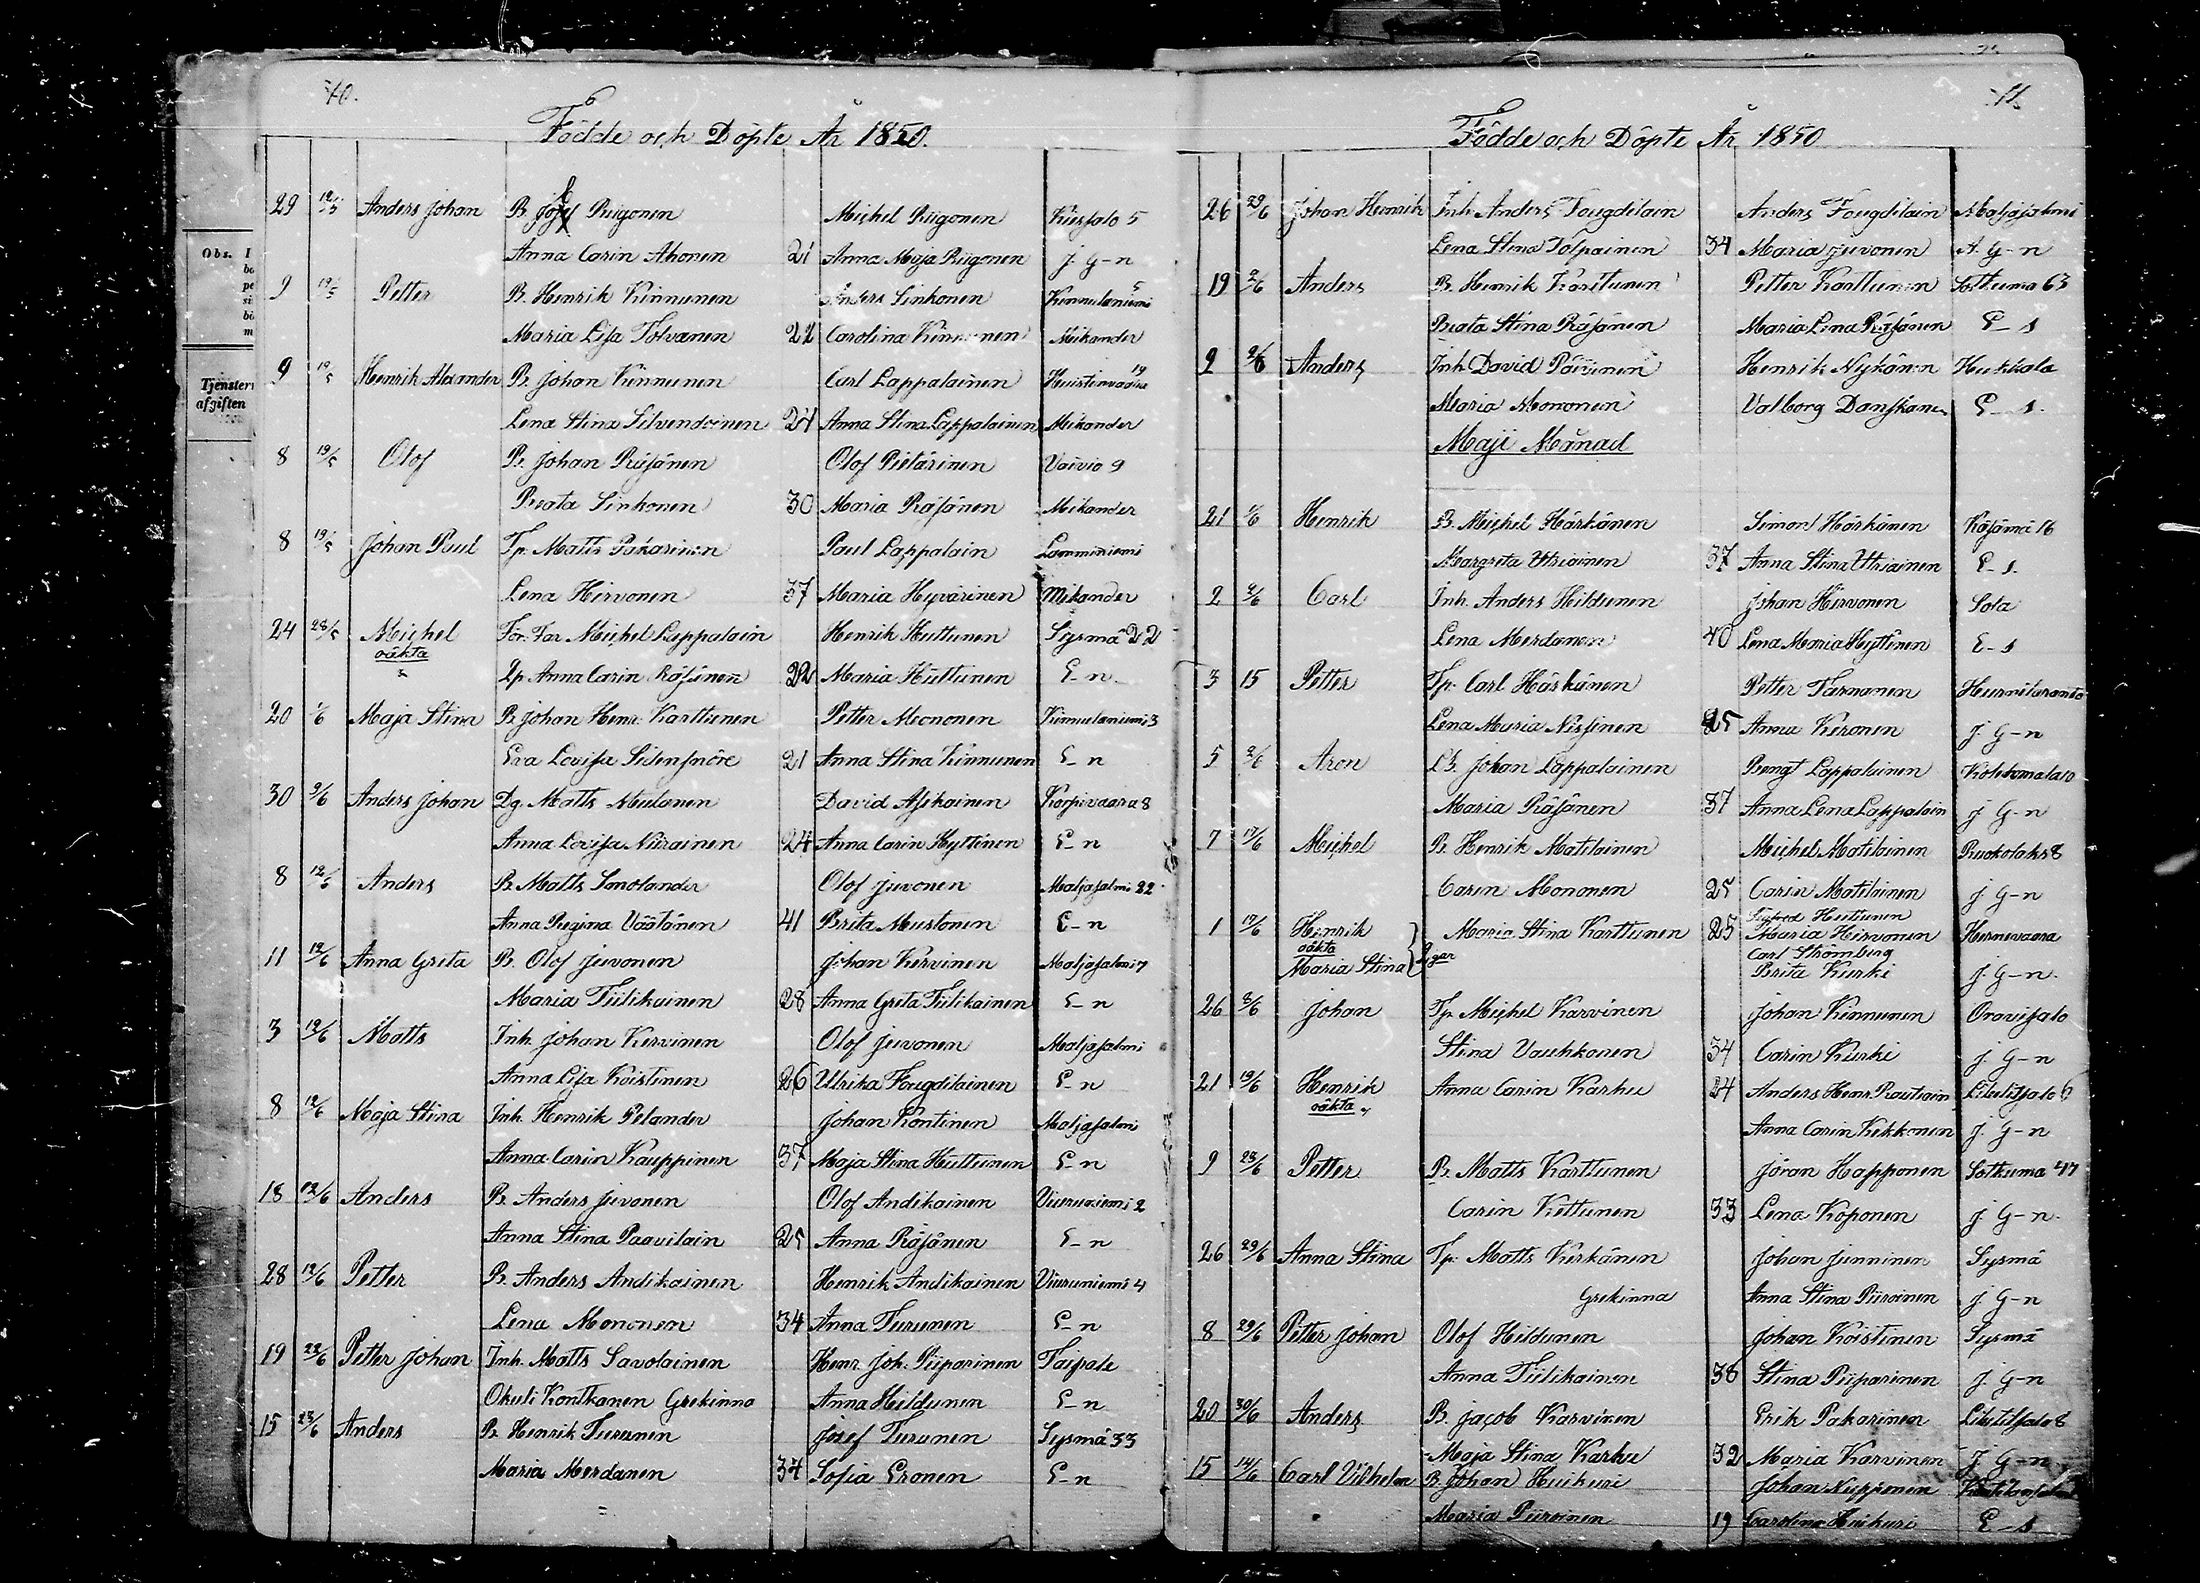 40.
Födde och Döpte År 1850.
29 12/5 Anders Johan B. Josef Riigonen Michel Riigonen Kuusjalo 5
Anna Carin Ahonen 21 Anna Maja Riigonen J. G-n
9 19/5 Petter B. Henrik Kinnunen Anders Sinkonen Kinnulaniemi 5
Maria Lisa Tolvanen 22 Carolina Kinnunen Mikander
9 19/5 Henrik Alexander B. Johan Kinnunen Carl Lappalainen 19
Lena Stina Silvendoinen 24 Anna Stina Lappalainen Mikander
8 19/5 Olof B. Johan Räsänen Olof Pielärinen Vaivio 9
Beata Sinkonen 30 Maria Räsänen Mikander
8 19/5 Johan Paul Tp. Matts Pakarinen Paul Lappalain Lamminiemi
Lena Hirvonen 37 Maria Hyvärinen Mikander
24 28/5 Michel För. Far Michel Lappalain Henrik Huttunen Sysmä 22
oäkta Lp Anna Carin Räsänen 22 Maria Huttunen E-n
20 1/6 Maja Stina B. Johan Henr. Karttunen Petter Mononen Kinnulaniemi 3
Eva Lovisa Sidensnöre 21 Anna Stina Kinnunen E-n
30 9/6 Anders Johan Dg. Matts Mulanen David Asikainen Karpivaara 8
Anna Lovisa Niiranen 24 Anna Carin Hyttinen E-n
8 12/6 Anders B. Matts Smolander Olof Juvonen Maljasalmi 22
Anna Regina Väätänen 41 Brita Mustonen E-n
11 12/6 Anna Greta B. Olof Juvonen Johan Kervinen Maljasalmi 7
Maria Tiilikainen 28 Anna Greta Tiilikainen E-n
3 12/6 Matts Inh. Johan Kervinen Olof Juvonen Maljasalmi
Anna Lisa Koistinen 26 Ulrika Fougdilainen E-n
8 12/6 Maja Stina Inh. Henrik Pelander Johan Kontinen Maljasalmi
Anna Carin Kauppinen 37 Maja Stina Huttunen E-n
18 12/6 Anders B. Anders Juvonen Olof Andikainen Viuruniemi 2
Anna Stina Paavilain 25 Anna Räsänen E-n
28 12/6 Petter B. Anders Andikainen Henrik Andikainen Viuruniemi 4
Lena Mononen 34 Anna Turunen E-n
19 22/6 Petter Johan Inh. Matts Savolainen Henr. Joh. Piiparinen Taipale
Okuli Kontkanen Grekinna Anna Hildunen E-n
15 23/6 Anders B. Henrik Turunen Josef Turunen Sysmä 33
Maria Merdanen 34 Sofia Eronen E-n
Obs. I
Tjensters
afgiften
41
Födde och Döpte År 1850
26 29/6 Johan Henrik Inh. Anders Fougdilain Anders Fougdilain Maljasalmi
Lena Stina Tolpainen 34 Maria Juvonen A. G-n
19 2/6 Anders B. Henrik Karttunen Petter Karttunen Sotkuma 63
Beata Stina Räsänen Maria Lena Räsänen E-s
9 2/6 Anders Inh. David Päivinen Henrik Nykänen Kukkola
Maria Mononen Valborg Danskanen E-s.
Maji Månad
21 1/6 Henrik B. Michel Härkänen Simon Härkänen Käsämä 16
Margreta Utriainen 37 Anna Stina Utriainen E-s.
2 2/6 Carl Inh. Anders Hildunen Johan Hirvonen Sola
Lena Merdanen 40 Lena Maria Hyttinen E-s
3 15 Petter Tp. Carl Härkänen Petter Tarnanen
Lena Maria Nissinen 25 Anna Keronen J. G-n
5 2/6 Aron LB. Johan Lappalainen Bengt Lappalainen
Maria Räsänen 37 Anna Lena Lappalain J. G-n
7 17/6 Michel B. Henrik Matilainen Michel Matilainen Ruokolaks 8
Carin Mononen 25 Carin Matilainen J. G-n
1 17/6 Henrik Maria Stina Karttunen 25 Sigfred Huttunen
oäkta Maria Hirvonen Hernevaara
Maria Stina Carl Strömberg
Brita Kurki J. G-n.
26 8/6 Johan Tp. Michel Karvinen Johan Kinnunen Oravisalo
Stina Vauhkonen 34 Carin Kurki J. G-n
21 19/6 Henrik Anna Carin Karhu 24 Anders Henr. Rautiain Liitelitsalo 6
oäkta Anna Carin Kekkonen J. G-n
9 23/6 Petter B. Matts Karttunen Jöran Happonen Sotkuma 47
Carin Kettunen 33 Lena Koponen J. G-n.
26 29/6 Anna Stina Tp. Matts Kärkänen Johan Jenninen Sysmä
Grekinna Anna Stina Piiroinen J. G-n
8 29/6 Petter Johan Olof Hildunen Johan Koistinen Sysmä
Anna Tiilikainen 38 Stina Piiparinen J. G-n
20 30/6 Anders B. Jacob Karvinen Erik Pakarinen Liitelitsalo 8
Maja Stina Karhu 32 Maria Karvinen J. G-n
15 14/6 Carl Vilhelm B. Johan Huikuri Johan Nupponen
Maria Piiroinen 19 Carolina Huikuri E-s